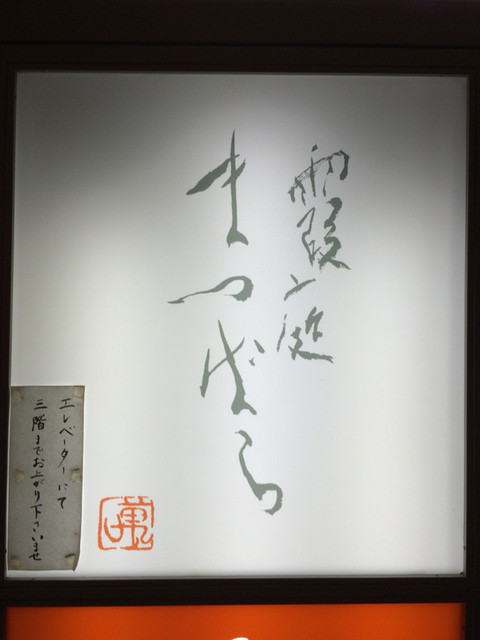 霞ヶ庭
まつばら
エレベーターにて
三階までお上がり下さいませ